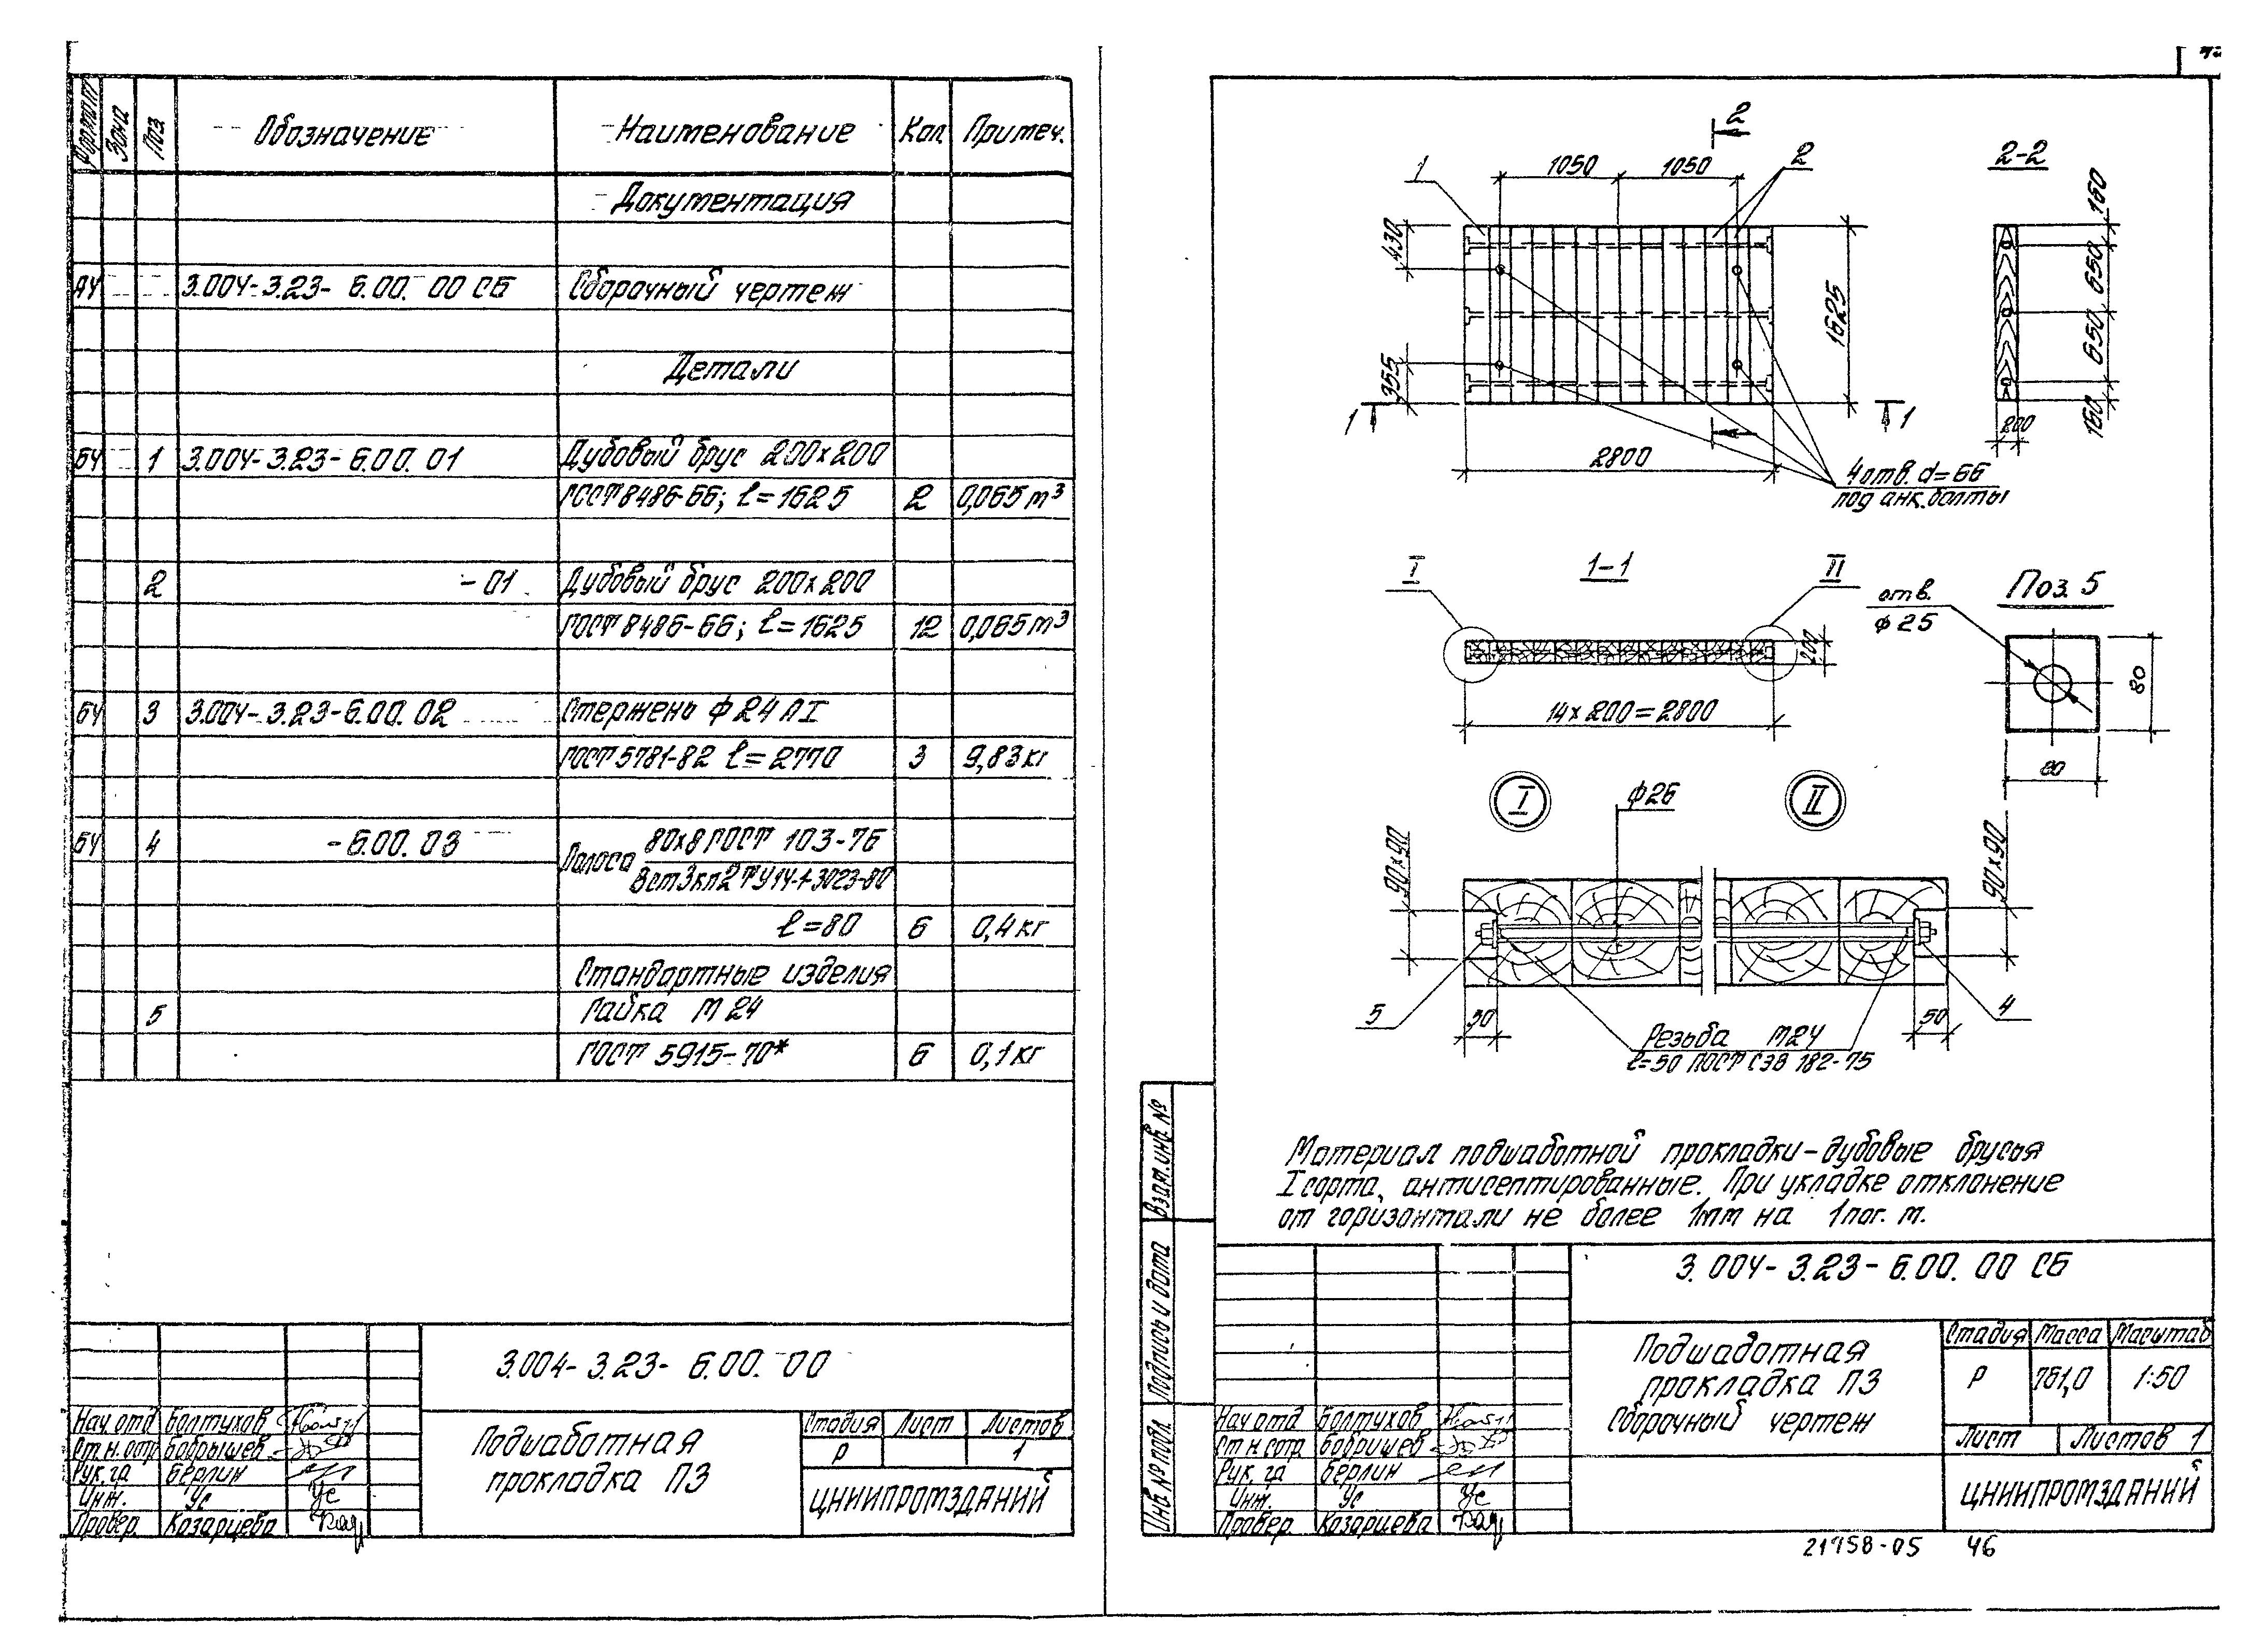 Формат Зона Поз. Обозначение Наименование Кол. Примеч.
Документация
А4 3.004-3.23-6.00.00 СБ Сборочный чертеж
Детали
БЧ 1 3.004-3.23-6.00.01 Дубовый брус 200х200
ГОСТ 8486-66; ℓ=1625 2 0,065 м³
2 -01 Дубовый брус 200х200
ГОСТ 8486-66; ℓ=1625 12 0,065 м³
БЧ 3 3.004-3.23-6.00.02 Стержень ф 24 АI
ГОСТ 5781-82 ℓ=2770 3 9,83 кг
БЧ 4 -6.00.03 Полоса 80х8 ГОСТ 103-76
ВСт3кп2 ТУ14-1-3023-80
ℓ=80 6 0,4 кг
Стандартные изделия
5 Гайка М24
ГОСТ 5915-70* 6 0,1 кг
3.004-3.23-6.00.00
Нач. отд Болтухов
Ст. н. сотр Бобрышев
Рук. гр Берлин
Инж. Ус
Провер. Казарцева
Подшаботная
прокладка П3
Стадия Лист Листов
Р 1
ЦНИИПРОМЗДАНИЙ
2
1 1050 1050 2
2-2
430
355
1625
160
650
650
160
200
1 1
2800
4 отв. d=66
под анк. болты
I 1-1 II
отв.
ф 25
Поз. 5
200
80
80
14х200=2800
I ф26 II
90х90
90х90
5 50 50 4
Резьба М24
ℓ=50 ГОСТ СЭВ 182-75
Материал подшаботной прокладки-дубовые брусья
I сорта, антисептированные. При укладке отклонение
от горизонтали не более 1мм на 1пог. м.
Взам. инв. №
Подпись и дата
Инв. № подл.
3.004-3.23-6.00.00 СБ
Нач отд Болтухов
Ст н сотр. Бобришев
Рук. гр Берлин
Инж. Ус
Провер. Казарцева
Подшаботная
прокладка П3
Сборочный чертеж
Стадия Масса Масштаб
Р 761,0 1:50
Лист Листов 1
ЦНИИПРОМЗДАНИЙ
21758-05 46